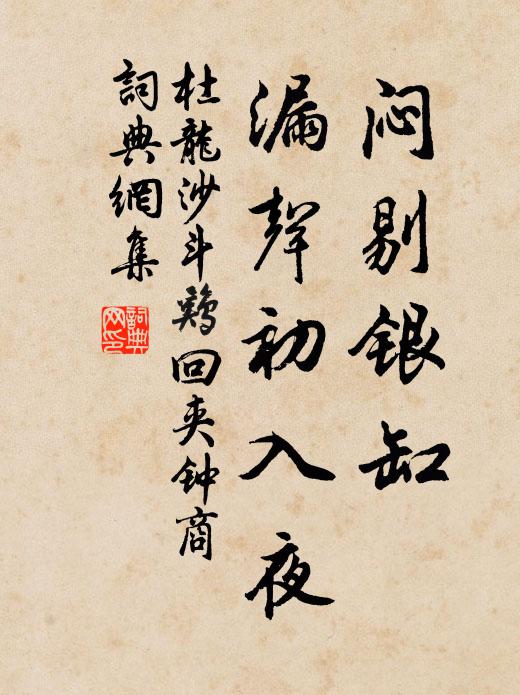 闷剔银缸
漏聲初入夜
杜龍沙斗鷄回夹钟商
詞典網集
詞典网印